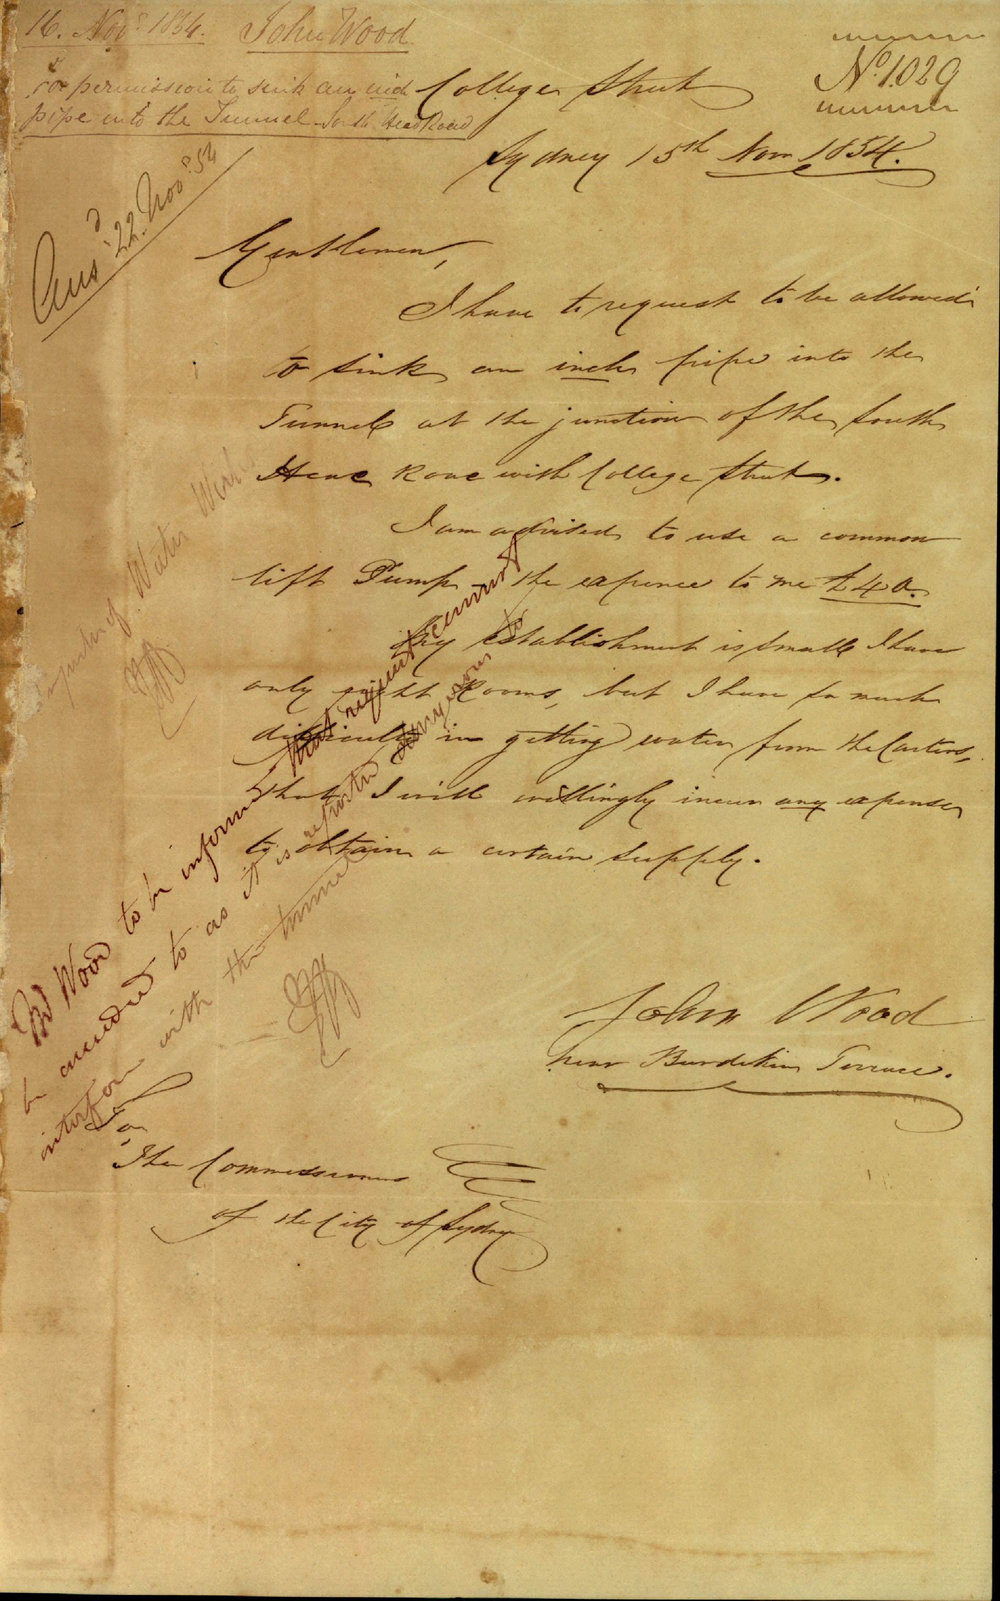 16. Novr. 1854. John Wood
For permission to sink an inch
pipe into the Tunnel South Head Road
No. 1029
College Street
Sydney 15th Nov 1854.
Ansd. 22. Novr. 54
Gentlemen,
I have to request to be allowed
to sink an inch pipe into the
Tunnel at the junction of the South
Head Road with College Street.
I am advised to use a common
lift Pump - the expence to me £40.
My establishment is small I have
only eight Rooms, but I have so much
difficulty in getting water from the Carters,
that I will willingly incur any expense
to obtain a certain supply.
John Wood
near Burdekin Terrace.
To,
The Commissioners
of the City of Sydney
Inspector of Water Works
Mr Wood to be informed that request cannot
be acceeded to as it is reported dangerous to
interfere with the tunnel